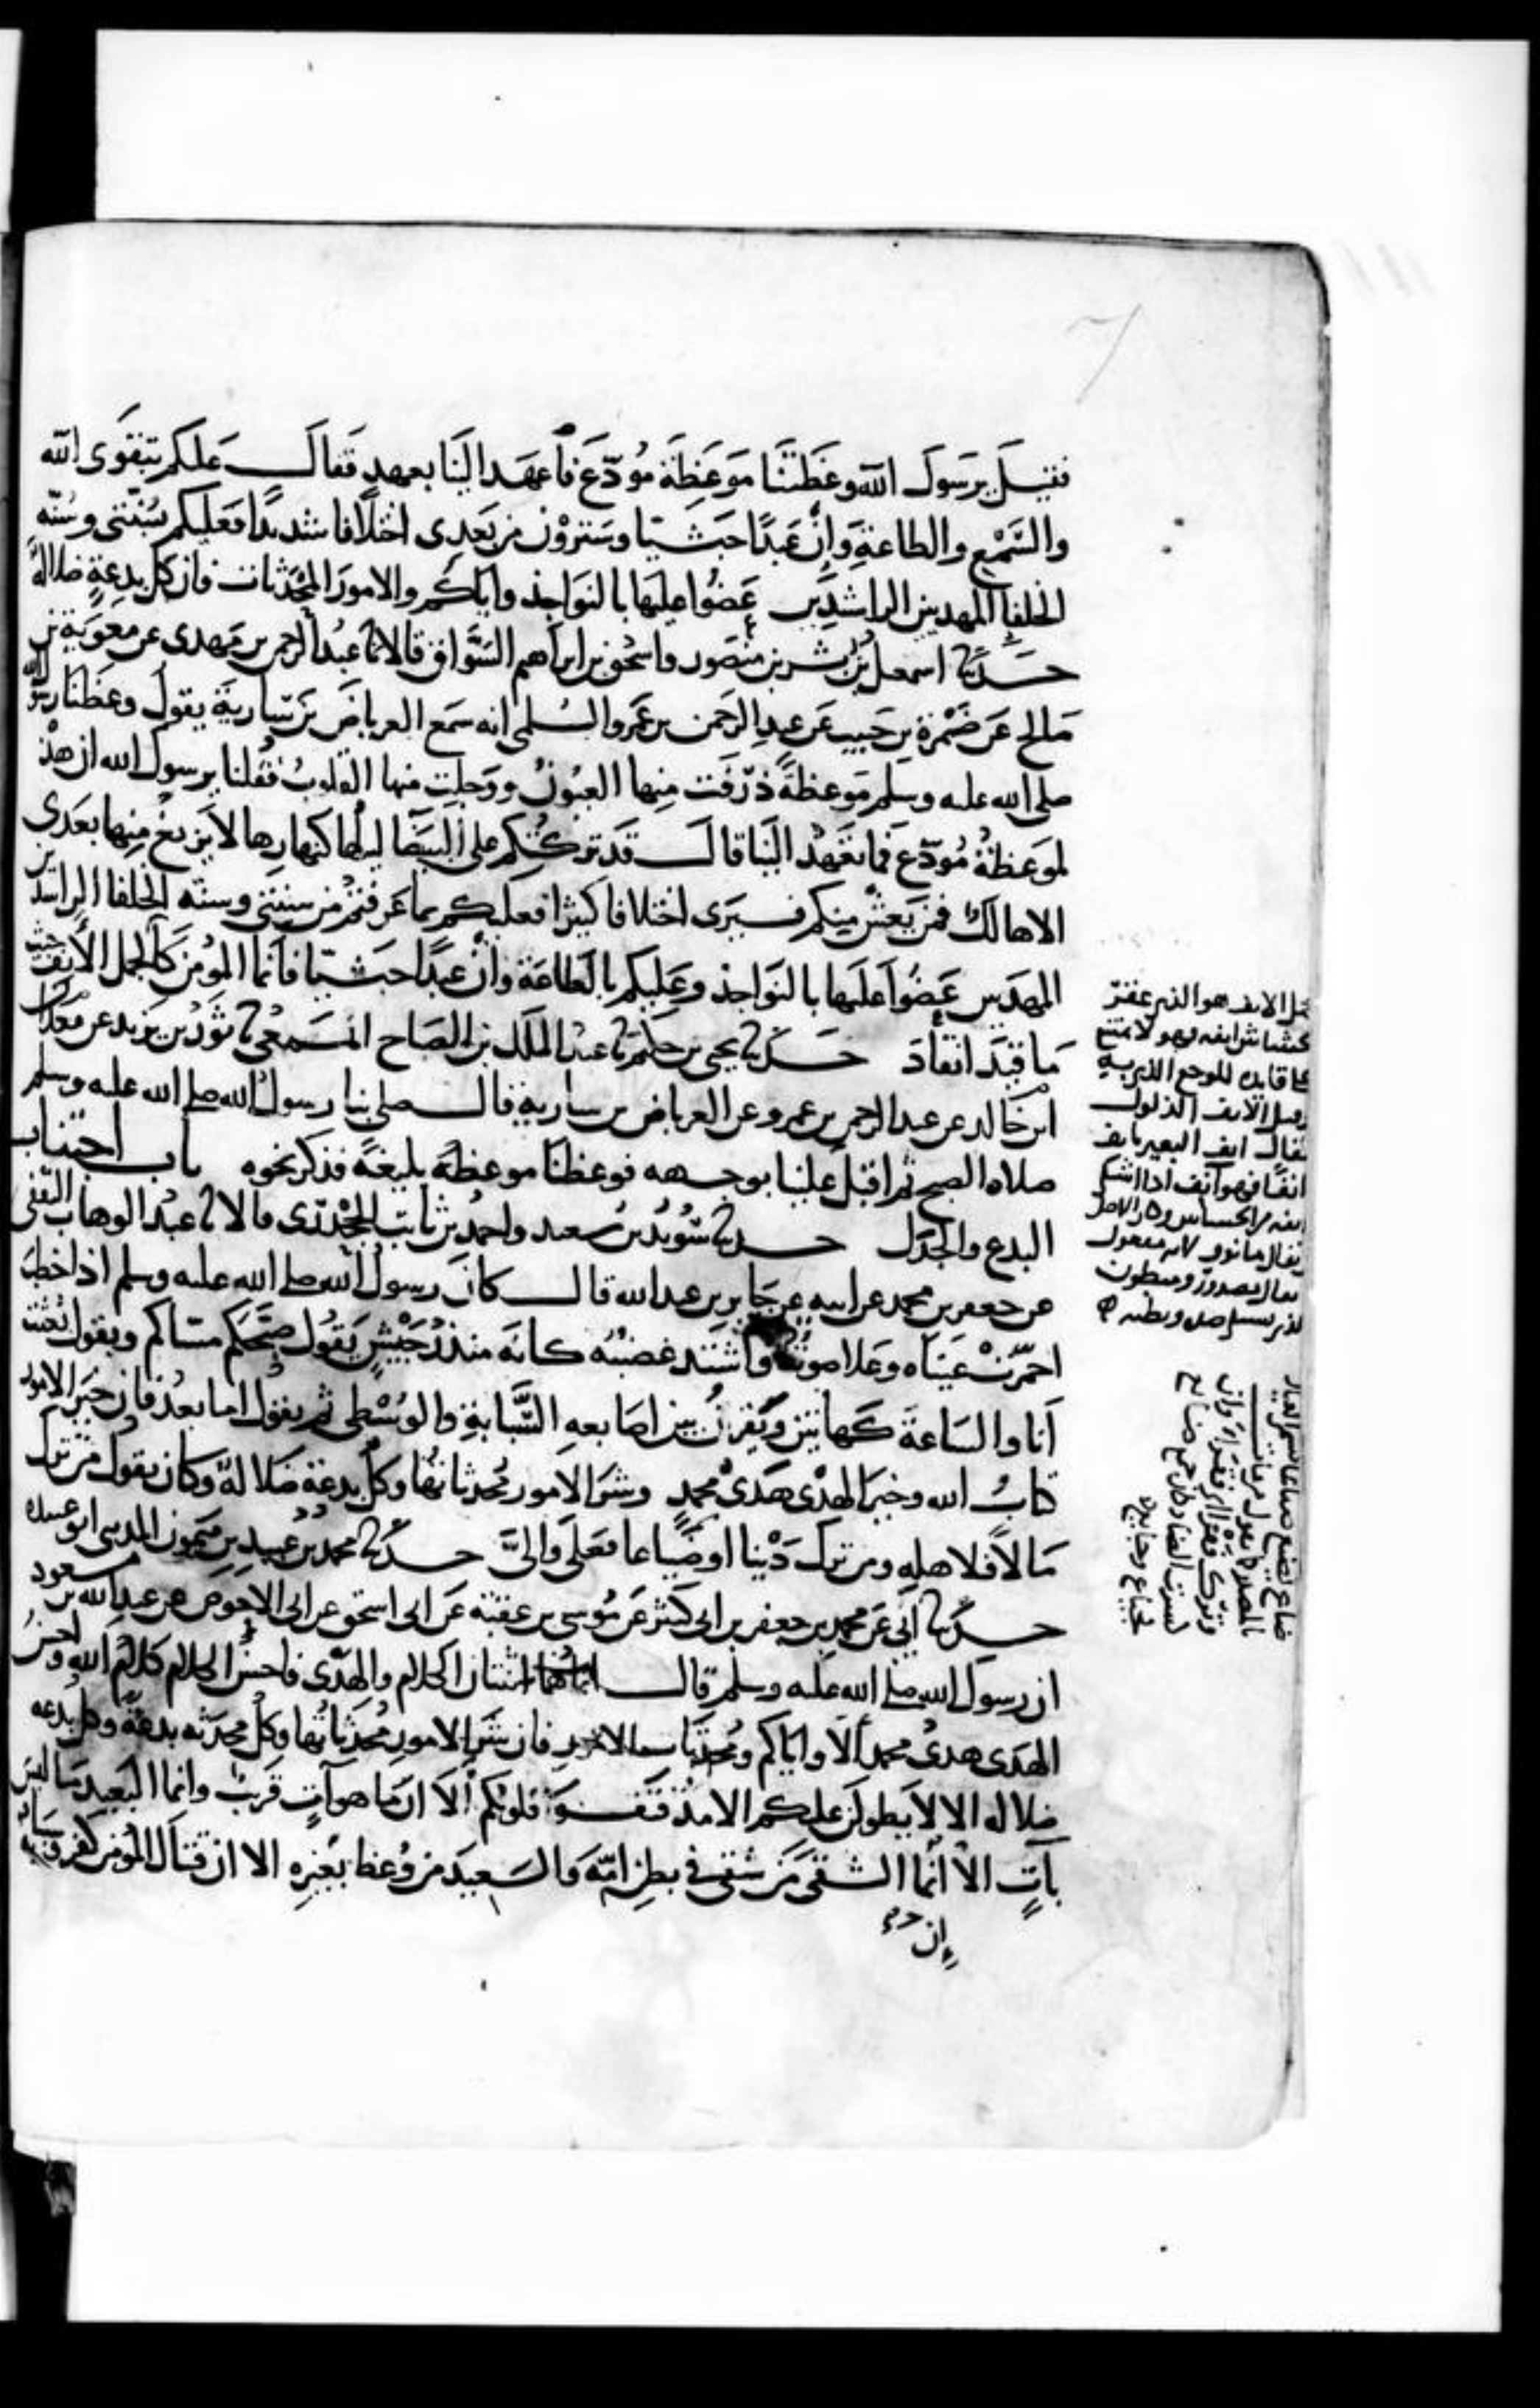 فقيل يرسول الله وعظتنا موعظة مودع فاعهد الينا بعهد فقال عليكم بتقوى الله
والسمع والطاعة وان عبدا حبشيا وسترون من بعدى اختلافا شديدا فعليكم بسنتي وسنة
الخلفا المهديين الراشدين عضوا عليها بالنواجذ واياكم والامور المحدثات فان كل بدعة ضلالة
حدثنا اسمعيل بن بشر بن منصور واسحق بن ابراهيم السواق قالا ثنا عبد الرحمن بن مهدى عن معوية بن
صالح عن ضمرة بن حبيب عن عبد الرحمن بن عمرو السلمي انه سمع العرباض بن سارية يقول وعظنا رسول الله
صلى الله عليه وسلم موعظة ذرفت منها العيون ووجلت منها القلوب فقلنا يرسول الله ان هذه
لموعظة مودع فما تعهد الينا قال قد تركتكم على البيضا ليلها كنهارها لا يزيغ منها بعدى
الا هالك فمن يعش منكم فسيرى اختلافا كثيرا فعليكم بما عرفتم من سنتي وسنة الخلفا الراشدين
المهديين عضوا عليها بالنواجذ وعليكم بالطاعة وان عبدا حبشيا فانما المومن كالجمل الانف حيث
ما قيد انقاد حدثنا يحيى بن حكيم ثنا عبد الملك بن الصباح المسمعي ثنا ثور بن يزيد عن معدان
ابن خالد عن عبد الرحمن بن عمرو عن العرباض بن سارية قال صلى بنا رسول الله صلى الله عليه وسلم
صلاة الصبح ثم اقبل علينا بوجهه فوعظنا موعظة بليغة فذكر نحوه باب اجتناب
البدع والجدل حدثنا سويد بن سعيد واحمد بن ثابت الجحدرى قالا ثنا عبد الوهاب الثقفي
عن جعفر بن محمد عن ابيه عن جابر بن عبد الله قال كان رسول الله صلى الله عليه وسلم اذا خطب
احمرت عيناه وعلا صوته واشتد غضبه كانه منذر جيش يقول صبحكم مساكم ويقول بعثت
انا والساعة كهاتين ويقرن بين اصابعه السبابة والوسطى ثم يقول اما بعد فان خير الامور
كتاب الله وخير الهدى هدى محمد وشر الامور محدثاتها وكل بدعة ضلالة وكان يقول من ترك
مالا فلاهله ومن ترك دينا او ضياعا فعلى والى حدثنا محمد بن عبيد بن ميمون المديني ابو عبيد
حدثنا ابي عن محمد بن جعفر بن ابي كثير عن موسى بن عقبة عن ابى اسحق عن ابى الاحوص عن عبد الله بن مسعود
ان رسول الله صلى الله عليه وسلم قال انما هما اثنتان الكلام والهدى فاحسن الكلام كلام الله واحسن
الهدى هدى محمد الا واياكم ومحدثات الامور فان شر الامور محدثاتها وكل محدثة بدعة وكل بدعة
ضلالة الا لا يطولن عليكم الامد فتقسو قلوبكم الا ان ما هو آت قريب وانما البعيد ما ليس
بآت الا انما الشقي من شقى في بطن امه والسعيد من وعظ بغيره الا ان قتال المومن كفر وسبابه
ان
الانف هو الذى عقر
انفه فهو لا يمتنع
على قايده للوجع الذى به
وقيل الانف الذلول
يقال انف البعير يانف
انفا فهو آنف اذا اشتكى